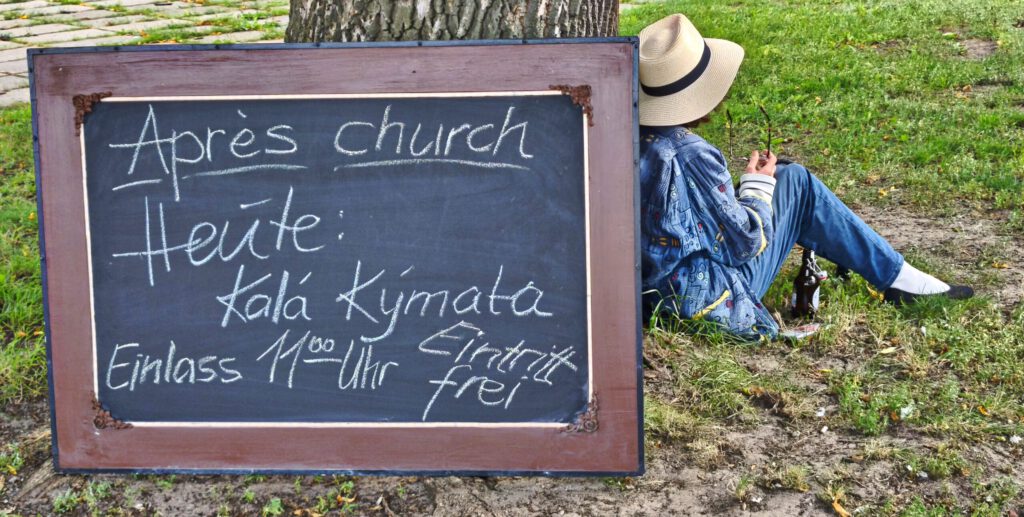 Après church
Heute:
Kalá Kýmata
Einlass 11⁰⁰ Uhr
Eintritt
frei